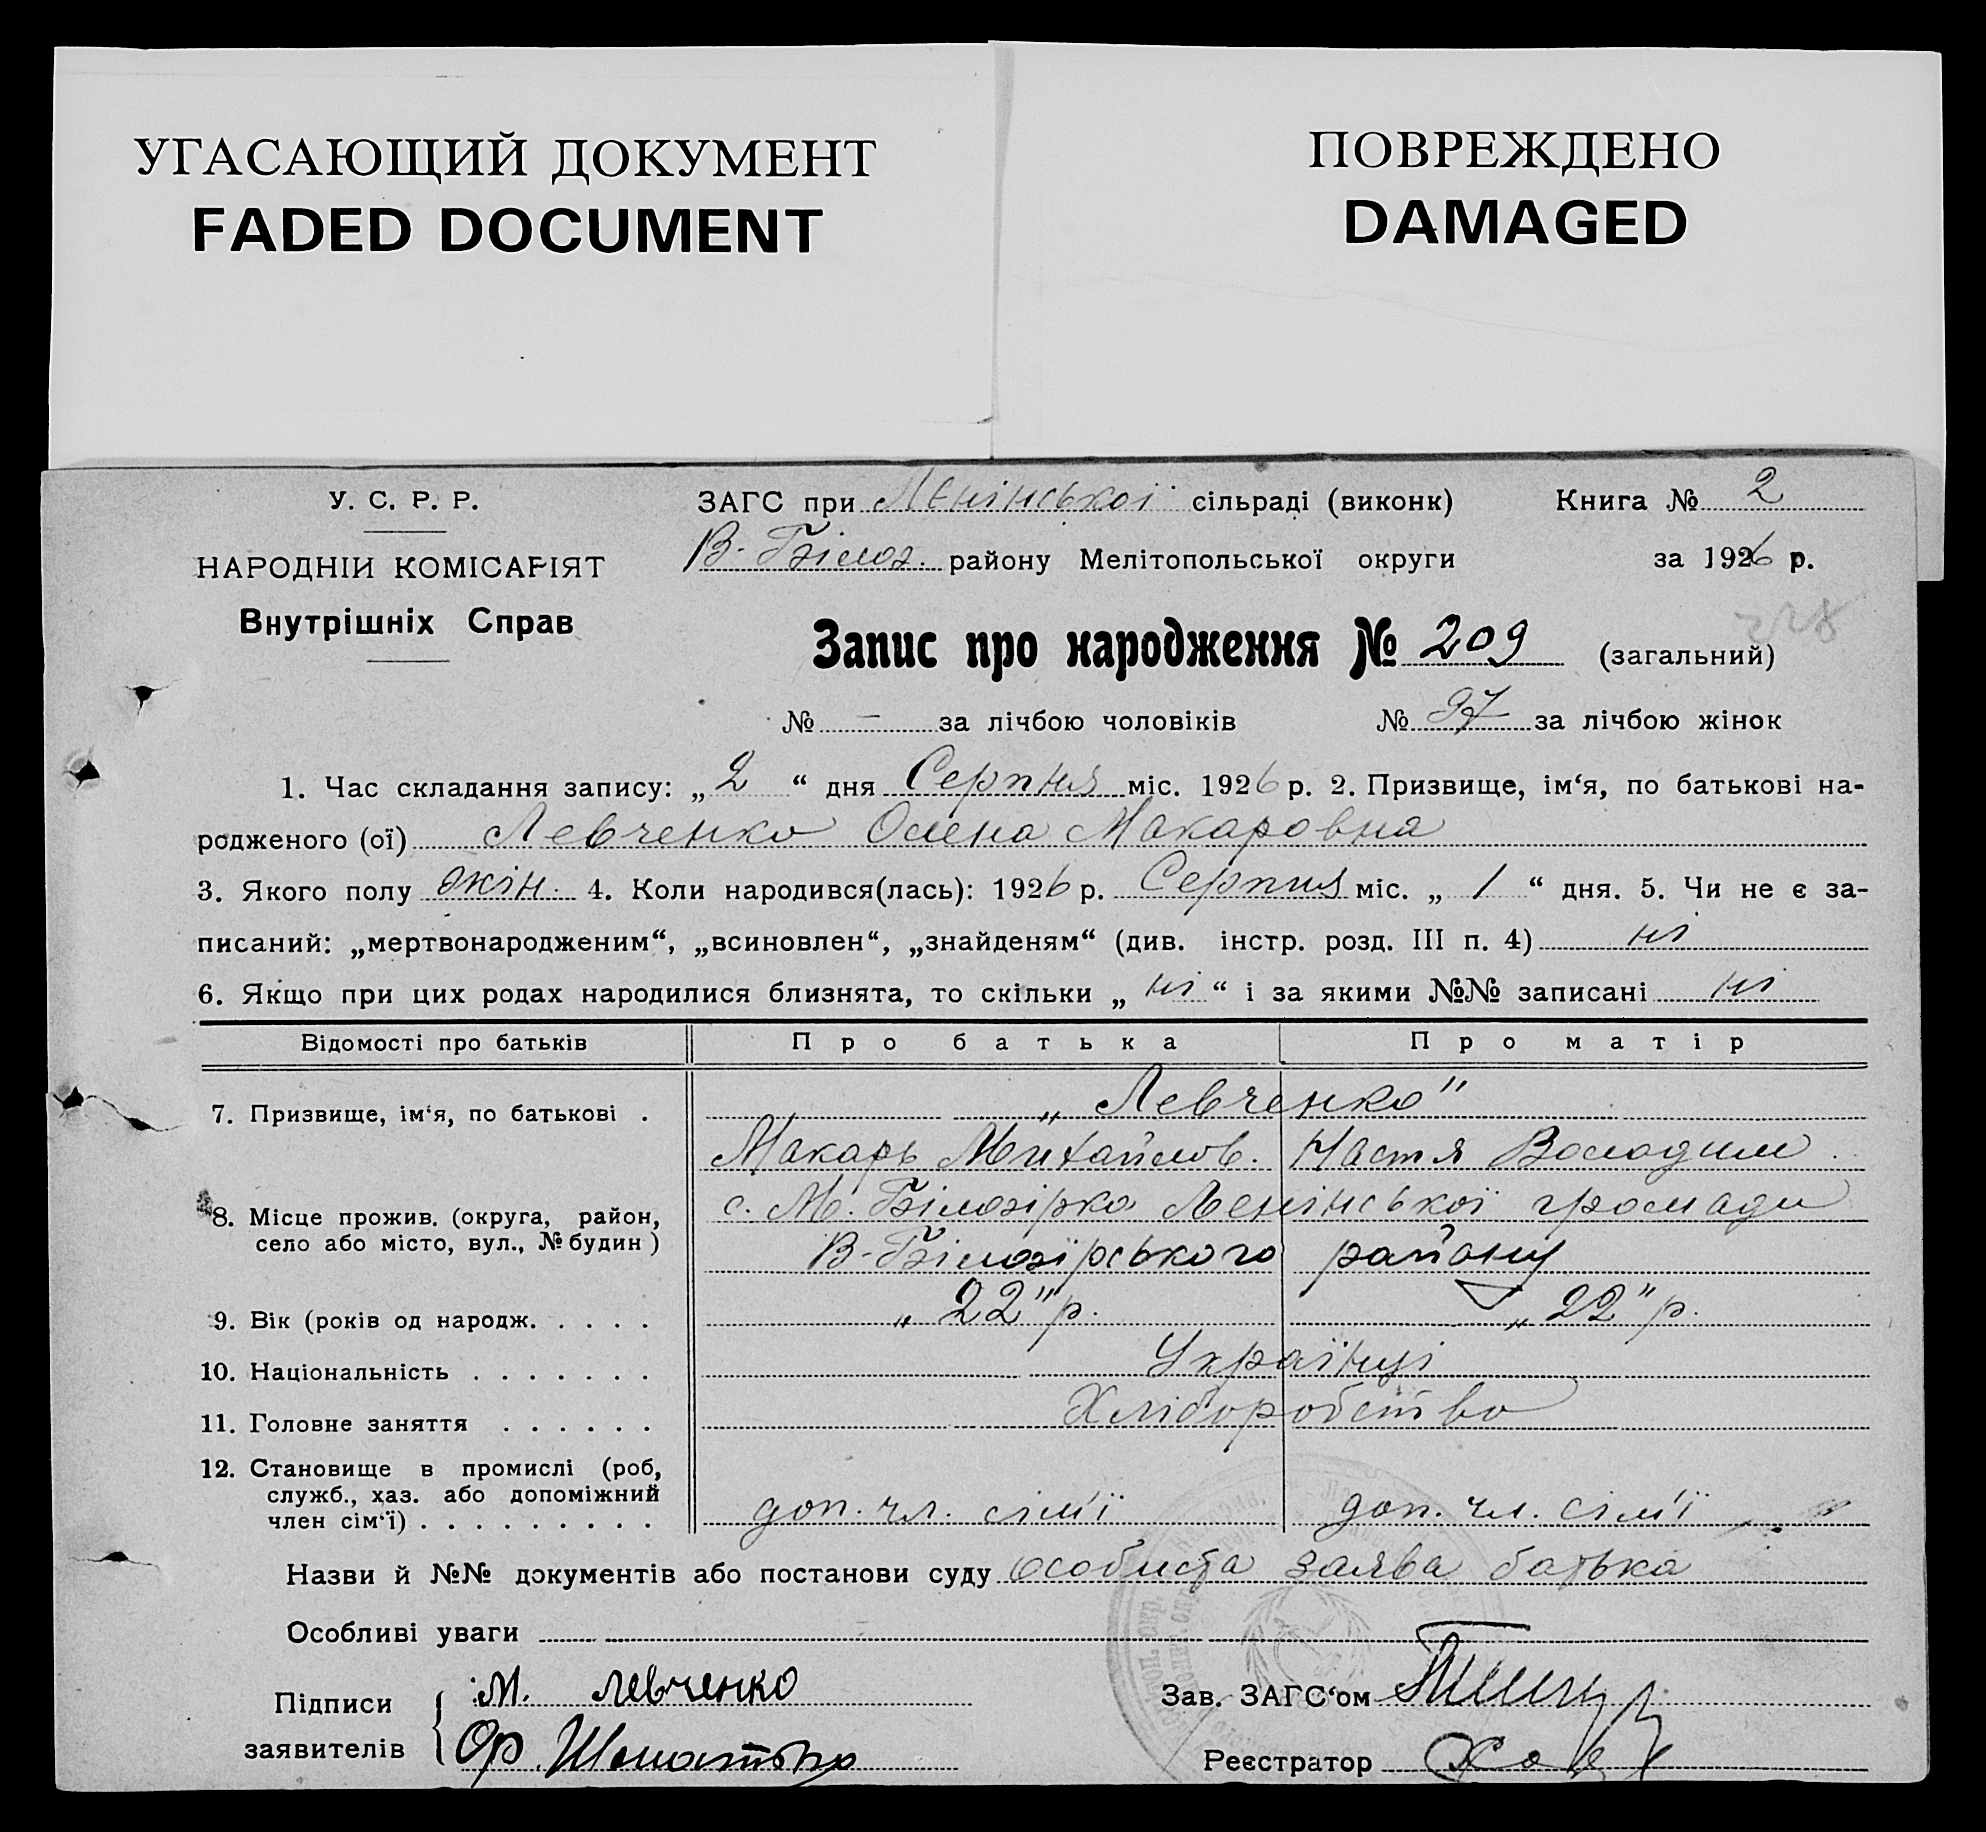 УГАСАЮЩИЙ ДОКУМЕНТ
FADED DOCUMENT
ПОВРЕЖДЕНО
DAMAGED
У. С. Р. Р.
НАРОДНІЙ КОМІСАРІЯТ
Внутрішніх Справ
ЗАГС при Ленінської сільраді (виконк) Книга № 2
В-Білоз. району Мелітопольської округи за 1926 р.
228
Запис про народження № 209 (загальний)
№ – за лічбою чоловіків № 97 за лічбою жінок
1. Час складання запису: „ 2 “ дня Серпня міс. 1926 р. 2. Призвище, ім‘я, по батькові на-
родженого (ої) Левченко Олена Макаровна
3. Якого полу жін. 4. Коли народився(лась): 1926 р. Серпня міс. „ 1 “ дня. 5. Чи не є за-
писаний: „мертвонародженим“, „всиновлен“, „знайденям“ (див. інстр. розд. III п. 4) ні
6. Якщо при цих родах народилися близнята, то скільки „ ні “ і за якими №№ записані ні
Відомості про батьків Про батька Про матір
7. Призвище, ім‘я, по батькові . „Левченко"
Макарь Михайлов. Настя Володим.
8. Місце прожив. (округа, район, с. М. Білозірка Ленінської громади
село або місто, вул., № будин ) В-Білозірського району
9. Вік (років од народж. . . . . „22" р. „22" р.
10. Національність . . . . . . . Українці
11. Головне заняття . . . . . . Хліборобство
12. Становище в промислі (роб,
служб., хаз. або допоміжний
член сім‘ї) . . . . . . . . . доп. чл. сімʼї доп. чл. сімʼї
Назви й №№ документів або постанови суду особиста заява батька
Особливі уваги
Підписи М. Левченко
заявителів Ор.
Зав. ЗАГС‘ом
Реєстратор